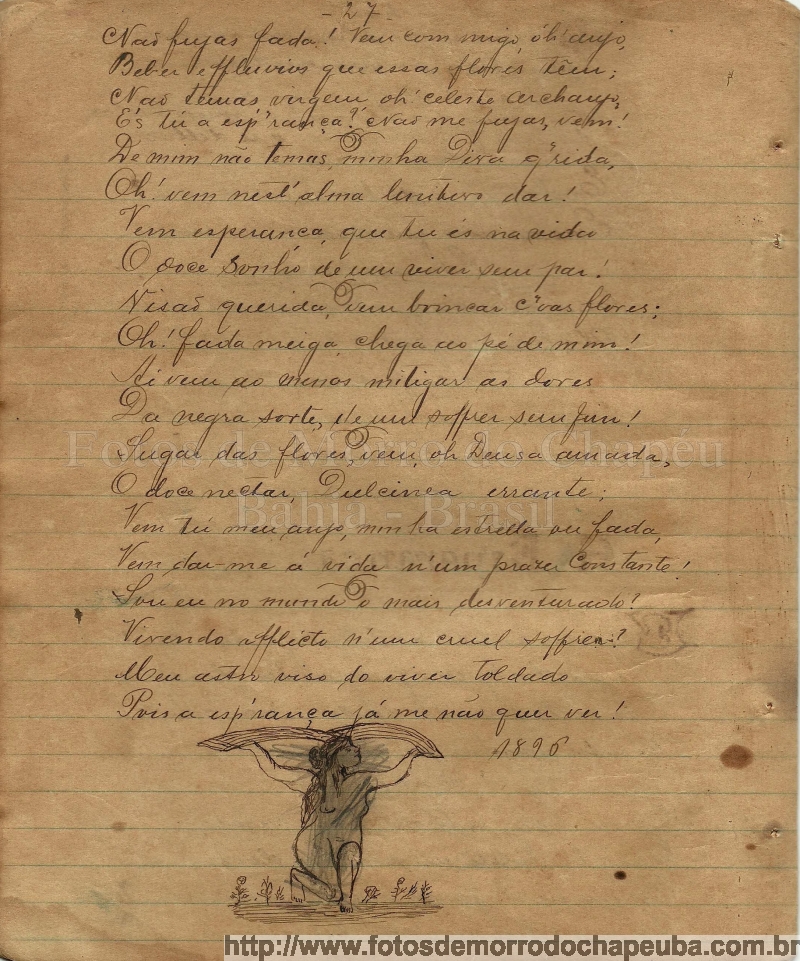 - 27 -
Não fujas fada! Vem com migo óh! anjo,
Beber effluvios que essas flores têm;
Não temas virgem, oh! celeste archanjo,
E's tú a esp'rança? Não me fujas, vem!
De mim não temas, minha Diva q'rida,
Oh! vem nest'alma lenitivo dar!
Vem esperança, que tu és na vida
O doce sonho de um viver sem par!
Visão querida, vem brincar c'oas flores;
Oh! fada meiga, chega ao pé de mim!
Ai vem ao menos mitigar as dores
Da negra sorte, de um soffrer sem fim!
Sugar das flores, vem, óh Deusa amada,
O doce nectar, Dulcinea errante;
Vem tu meu anjo, minha estrella ou fada,
Vem dar-me á vida n'um prazer constante!
Sou eu no mundo o mais desventurado?
Vivendo afflicto n'um cruel soffrer?
Meu astro viso do viver toldado
Pois a esp'rança já me não quer ver!
1896
Fotos de Morro do Chapéu
Bahia - Brasil
http://www.fotosdemorrodochapeuba.com.br